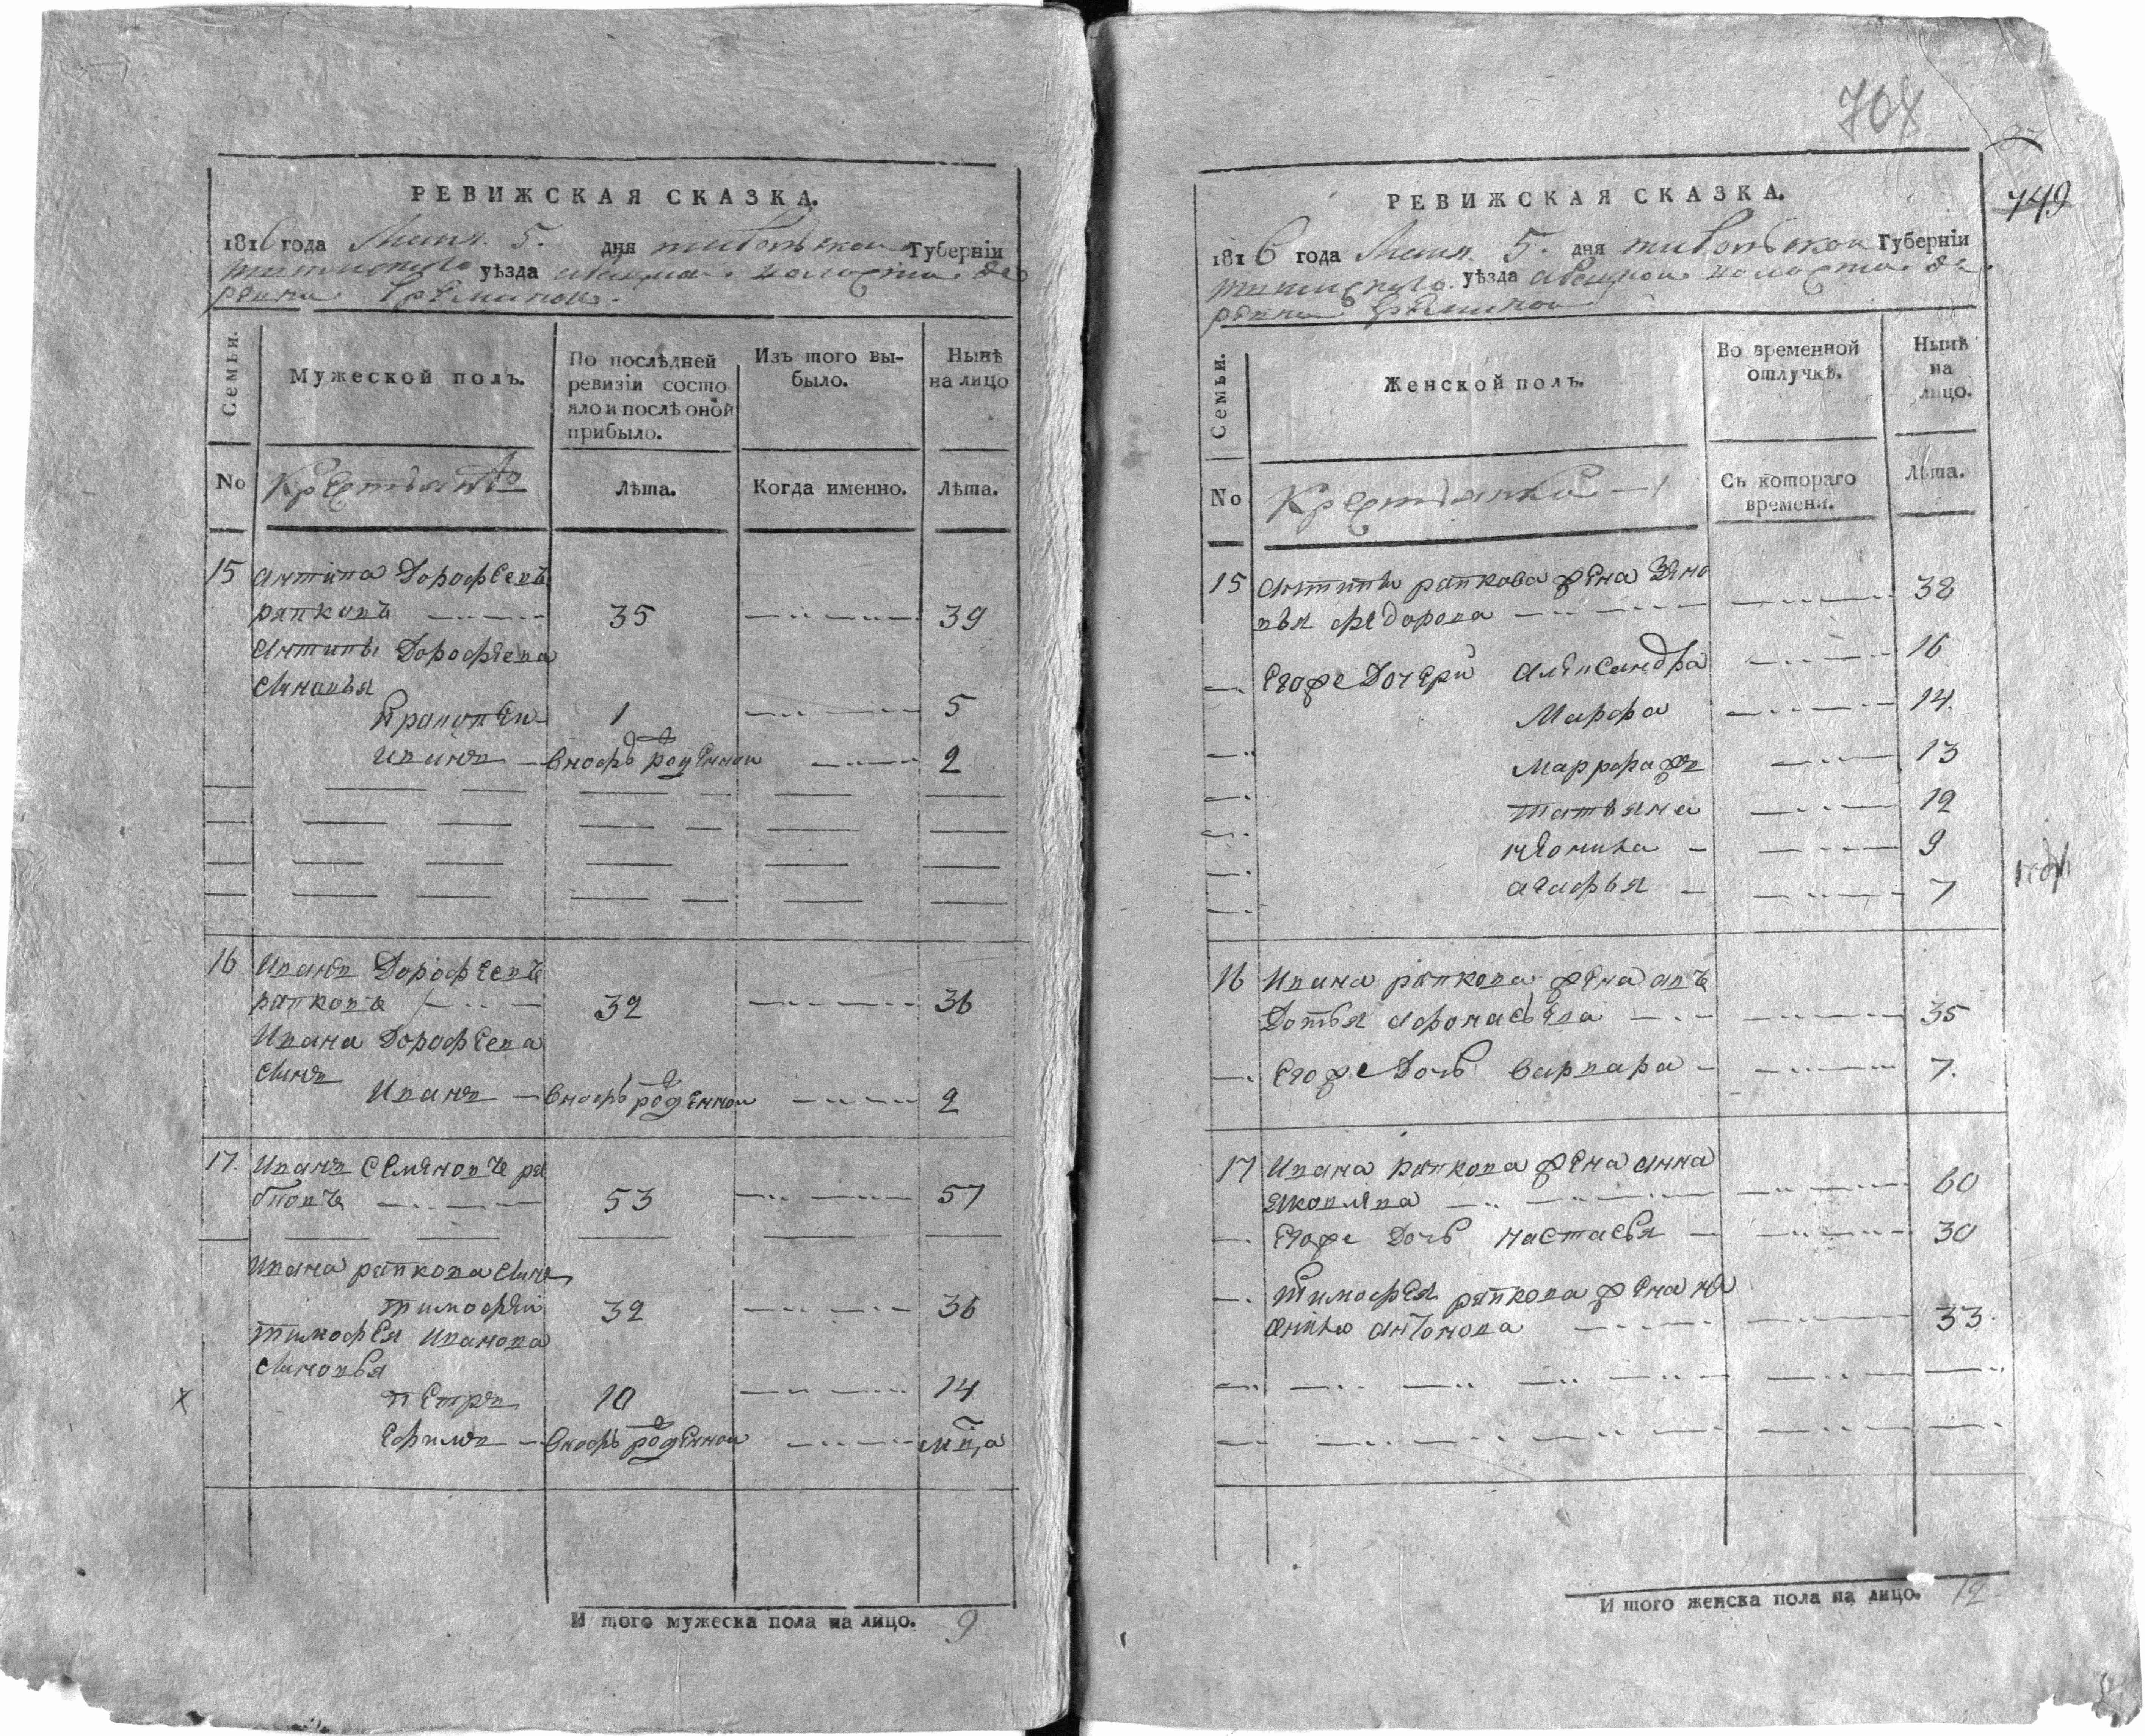 РЕВИЖСКАЯ СКАЗКА.
1816 года Маия 5. дня тибольской Губерніи
уѣзда волости де
ревни
Семьи.
Мужеской полъ.
По послѣдней ревизіи состояло и послѣ оной прибыло.
Изъ того выбыло.
Нынѣ на лицо
No
Лѣта.
Когда именно.
Лѣта.
15 Антипа Дорофеевъ
рапковъ 35 39
Антипы Дорофеева
Сыновья
Прокопей 1 5
Иванъ вновь рожденной 2
16 Иванъ Дорофеевъ
рапковъ 32 36
Ивана Дорофеева
Сынъ
Иванъ вновь рожденной 2
17. Иванъ Семеновъ ря
бковъ 53 57
Ивана рапкова Сынъ
тимофей 32 36
тимофея Иванова
Сыновья
х петръ 10 14
Ефимъ вновь рожденной мца
И того мужеска пола на лицо. 9
708
749
РЕВИЖСКАЯ СКАЗКА.
1816 года Маия 5. дня тибольской Губерніи
уѣзда волости де
ревни
Семьи.
Женской полъ.
Во временной отлучкѣ.
Нынѣ на лицо.
No
Съ котораго времени.
Лѣта.
15 Антипы рапкова жена Зено
вья федорова 38
Егоже Дочери Александра 16
Марфа 14.
Марфа же 13
татьяна 12
9
агафья 7
16 Ивана рапкова жена Авъ
Дотья Афонасьева 35
Егоже Дочь варвара 7.
17 Ивана рапкова жена Анна
Яковлева 60
Егоже Дочь настасья 30
тимофея рапкова жена
антонова 33.
И того женска пола на лицо. 12